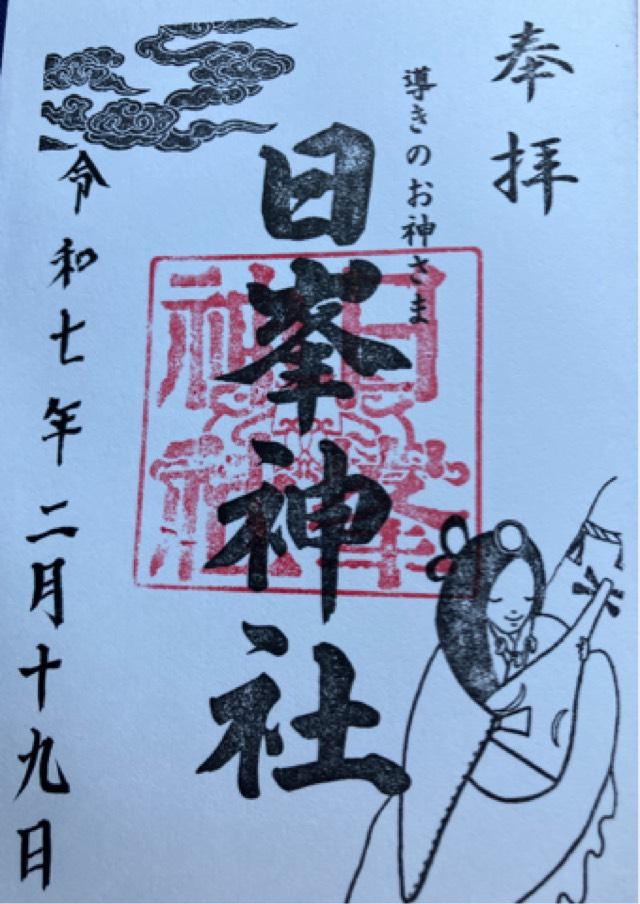 奉拝
導きのお神さま
日峯神社
日峯
神社
令和七年二月十九日